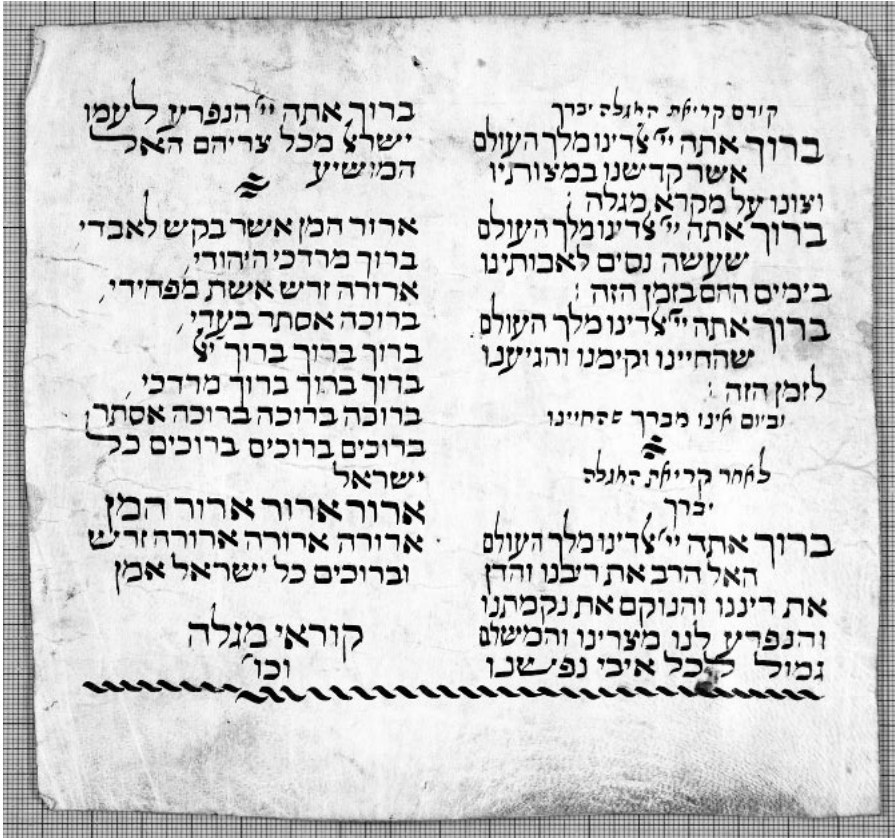 קודם קריאת המגלה יברך
ברוך אתה יי׳ ﭏדינו מלך העולם
אשר קדישנו במצותיו
וצונו על מקרא מגלה :
ברוך אתה יי׳ ﭏדינו מלך העולם
שעשה נסים לאבותינו
בימים ההם בזמן הזה :
ברוך אתה יי׳ ﭏדינו מלך העולם
שהחיינו וקימנו והגיענו
לזמן הזה :
וביום אינו מברך שהחיינו
לאחר קריאת המגלה
יברך
ברוך אתה יי׳ ﭏדינו מלך העולם
האל הרב את ריבנו והדן
את דיננו והנוקם את נקמתנו
והנפרע לנו מצרינו והמישלם
גמול לכל איבי נפישנו
ברוך אתה יי׳ הנפרע לעמו
ישרﭏ מכל צריהם האל
המושיע
ארור המן אשר בקש לאבדי
ברוך מרדכי היהודי,
ארורה זרש אשת מפחידי,
ברוכה אסתר בעדי,
ברוך ברוך ברוך יﭏ
ברוך ברוך ברוך מרדכי,
ברוכה ברוכה ברוכה אסתר
ברוכים ברוכים ברוכים כל
ישראל
ארור ארור ארור המן
ארורה ארורה ארורה זרש
וברוכים כל יישראל אמן
קוראי מגלה
וכו׳